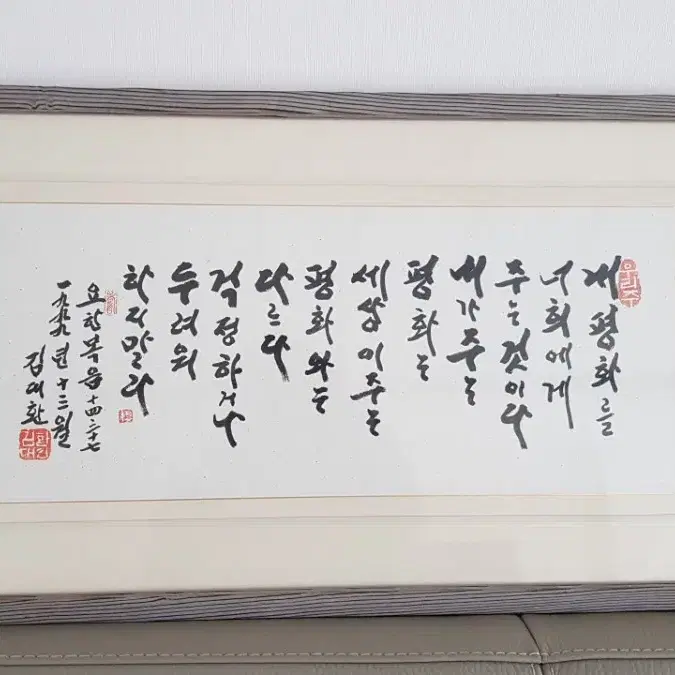 내 평화를
너희에게
주는것이다
내가주는
평화는
세상이주는
평화와는
다르다
걱정하거나
두려워
하지말라
요한복음 十四 二七
一九九九년 十二월
김대환